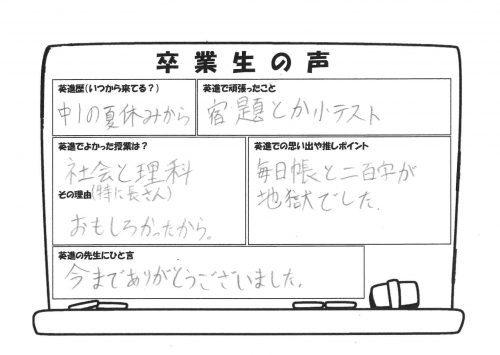 卒業生の声
英進歴(いつから来てる？)
中1の夏休みから
英進で頑張ったこと
宿題とか小テスト
英進でよかった授業は？
社会と理科
その理由(特に長さん)
おもしろかったから。
英進での思い出や推しポイント
毎日帳と二百字が
地獄でした.
英進の先生にひと言
今までありがとうございました.